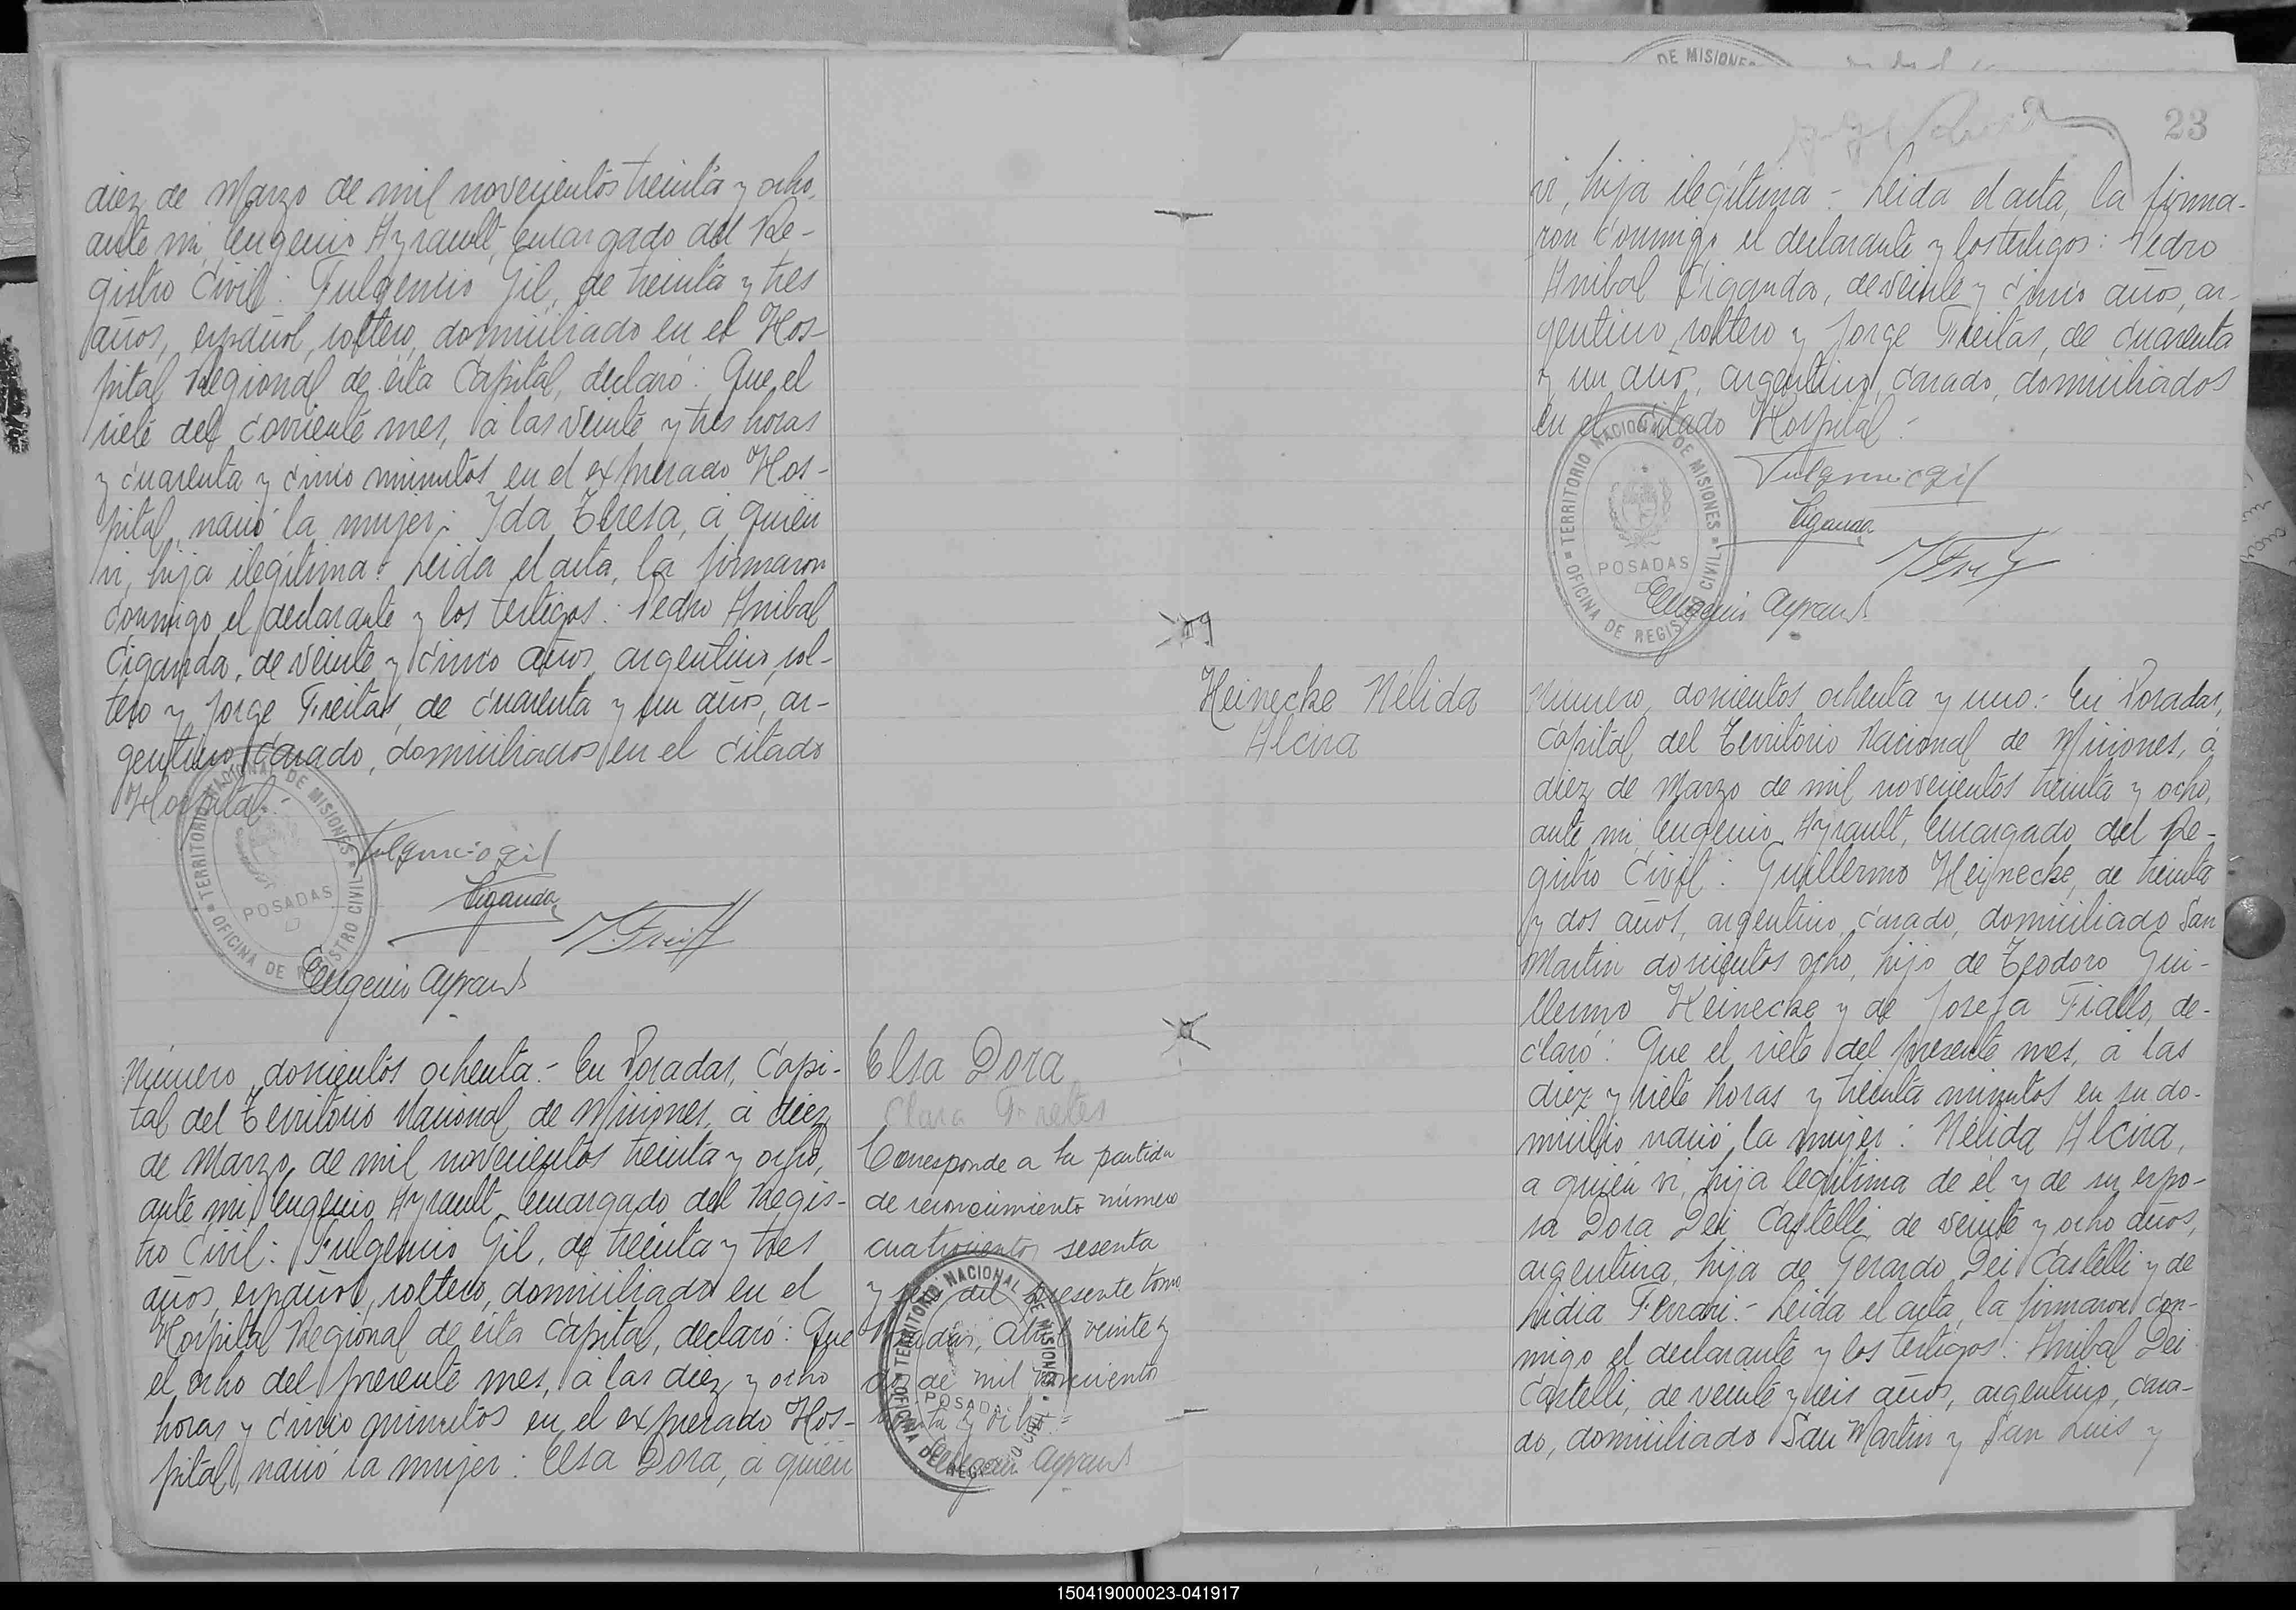 diez de Marzo de mil novecientos treinta y ocho,
ante mi, Eugenio Ayrault, Encargado del Re-
gistro Civil: Fulgencio Gil, de treinta y tres
años, español, soltero, domiciliado en el Hos-
pital Regional de ésta Capital, declaró: Que el
siete del corriente mes, a las veinte y tres horas
y cuarenta y cinco minutos en el expresado Hos-
pital, nació la mujer: Ida Teresa, a quién
vi, hija ilegítima.- Leida el acta, la firmaron
conmigo el declarante y los testigos: Pedro Anibal
Ciganda, de veinte y cinco años, argentino, sol-
tero y Jorge Freitas, de cuarenta y un años, ar-
gentino, casado, domiciliados en el citado
Hospital.-
TERRITORIO NACIONAL DE MISIONES
POSADAS
OFICINA DE REGISTRO CIVIL
Fulgencio Gil
Ciganda
J Freitas
Eugenio Ayrault
Número, doscientos ochenta.- En Posadas, Capi-
tal del Territorio Nacional de Misiones, a diez
de Marzo, de mil novecientos treinta y ocho,
ante mi, Eugenio Ayrault, Encargado del Regis-
tro Civil: Fulgencio Gil, de treinta y tres
años, español, soltero, domiciliado en el
Hospital Regional de ésta Capital, declaró: Que
el ocho del presente mes, a las diez y ocho
horas y cinco minutos en el expresado Hos-
pital, nació la mujer: Elsa Dora, a quién
Elsa Dora
Clara Fretes
Corresponde a la partida
de reconocimiento número
cuatrocientos sesenta
y del presente tomo
Posadas, Abril veinte y
de mil novecientos
treinta y ocho.-
TERRITORIO NACIONAL DE MISIONES
POSADAS
OFICINA DE REGISTRO CIVIL
Eugenio Ayrault
DE MISIONES
23
vi, hija ilegítima.- Leida el acta, la firma-
ron conmigo el declarante y los testigos: Pedro
Anibal Ciganda, de veinte y cinco años, ar-
gentino, soltero y Jorge Freitas, de cuarenta
y un años, argentino, casado, domiciliados
en el citado Hospital.-
TERRITORIO NACIONAL DE MISIONES
POSADAS
OFICINA DE REGISTRO CIVIL
Fulgencio Gil
Ciganda
J Freitas
Eugenio Ayrault
Heinecke Nélida
Alcira
Número, doscientos ochenta y uno.- En Posadas,
Capital del Territorio Nacional de Misiones, a
diez de Marzo de mil novecientos treinta y ocho,
ante mi, Eugenio Ayrault, Encargado del Re-
gistro Civil: Guillermo Heinecke, de treinta
y dos años, argentino, casado, domiciliado San
Martin doscientos ocho, hijo de Teodoro Gui-
llermo Heinecke y de Josefa Fiallo, de-
claró: Que el siete del presente mes, a las
diez y siete horas y treinta minutos en su do-
micilio nació la mujer: Nélida Alcira,
a quién vi, hija legítima de él y de su espo-
sa Dora Dei Castelli, de veinte y ocho años,
argentina, hija de Gerardo Dei Castelli y de
Lidia Ferrari.- Leida el acta, la firmaron con-
migo el declarante y los testigos: Anibal Dei
Castelli, de veinte y seis años, argentino, casa-
do, domiciliado San Martin y San Luis y
150419000023-041917